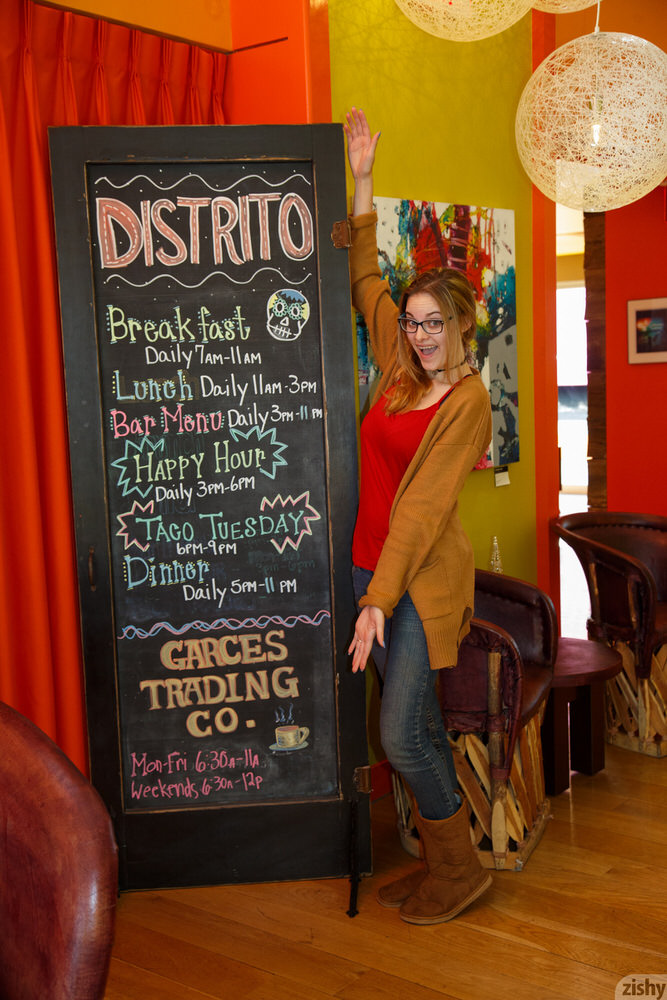 DISTRITO
Breakfast
Daily 7AM-11AM
Lunch Daily 11AM-3PM
Bar Menu Daily 3PM-11PM
Happy Hour
Daily 3PM-6PM
TACO TUESDAY
6PM-9PM
Dinner
Daily 5PM-11PM
GARCES
TRADING
CO.
Mon-Fri 6:30A-11A
Weekends 6:30A-12P
zishy